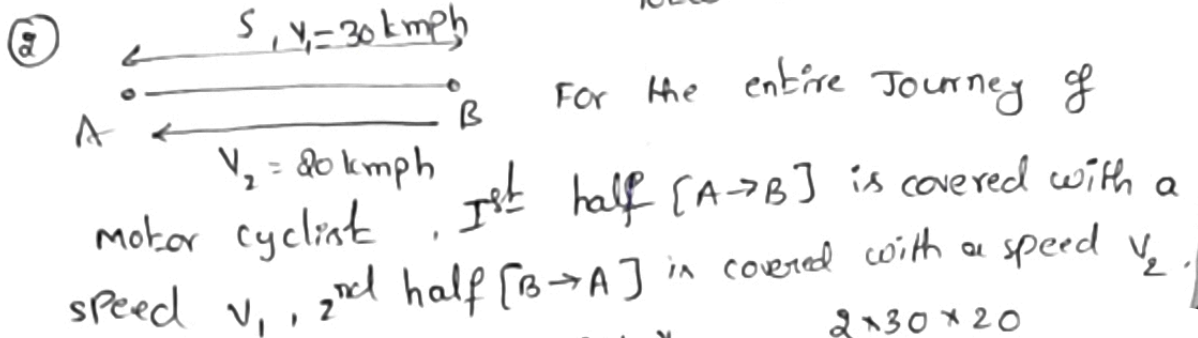 ②
S, V₁ = 30 kmph
A B For the entire Journey of
V₂ = 20 kmph
motor cyclist, Ist half [A→B] is covered with a
speed V₁, 2nd half [B→A] is covered with a speed V₂.
2×30×20